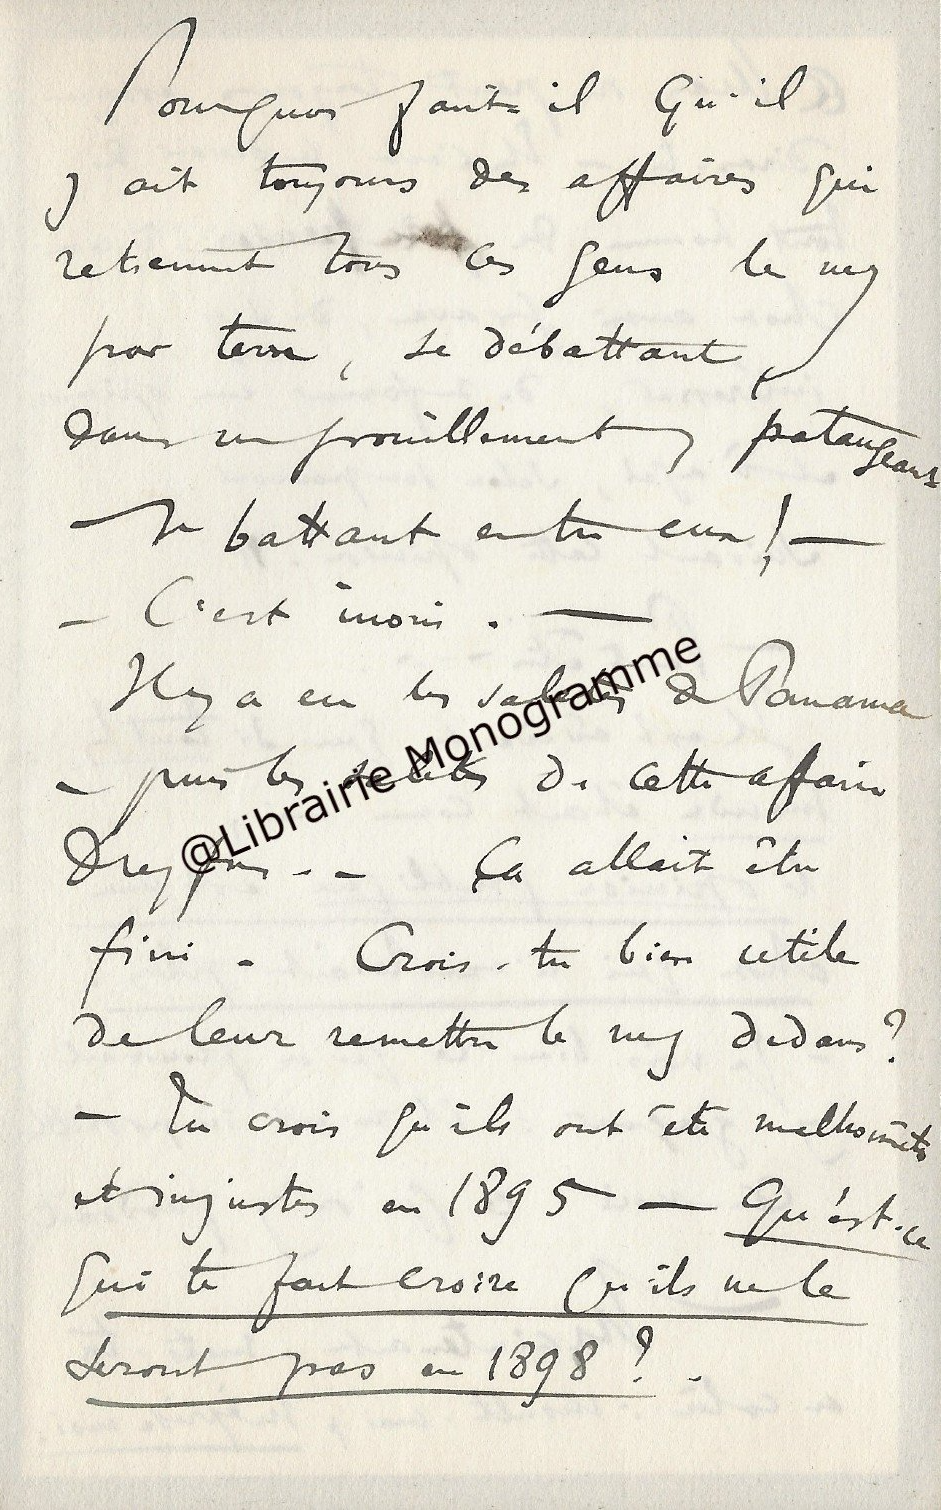 Pourquoi faut-il qu'il
y ait toujours des affaires qui
retiennent tous ces gens le nez
par terre, se débattant,
dans un grouillement, pataugeant
se battant entre eux ! —
— C'est inouï. —
Il y a eu les saletés de Panama
— puis les saletés de cette affaire
Dreyfus - - Ça allait être
fini - Crois-tu bien utile
de leur remettre le nez dedans ?
— Tu crois qu'ils ont été malhonnêtes
et injustes en 1895 — Qu'est-ce
qui te fait croire qu'ils ne le
seront pas en 1898 ? .
@Librairie Monogramme